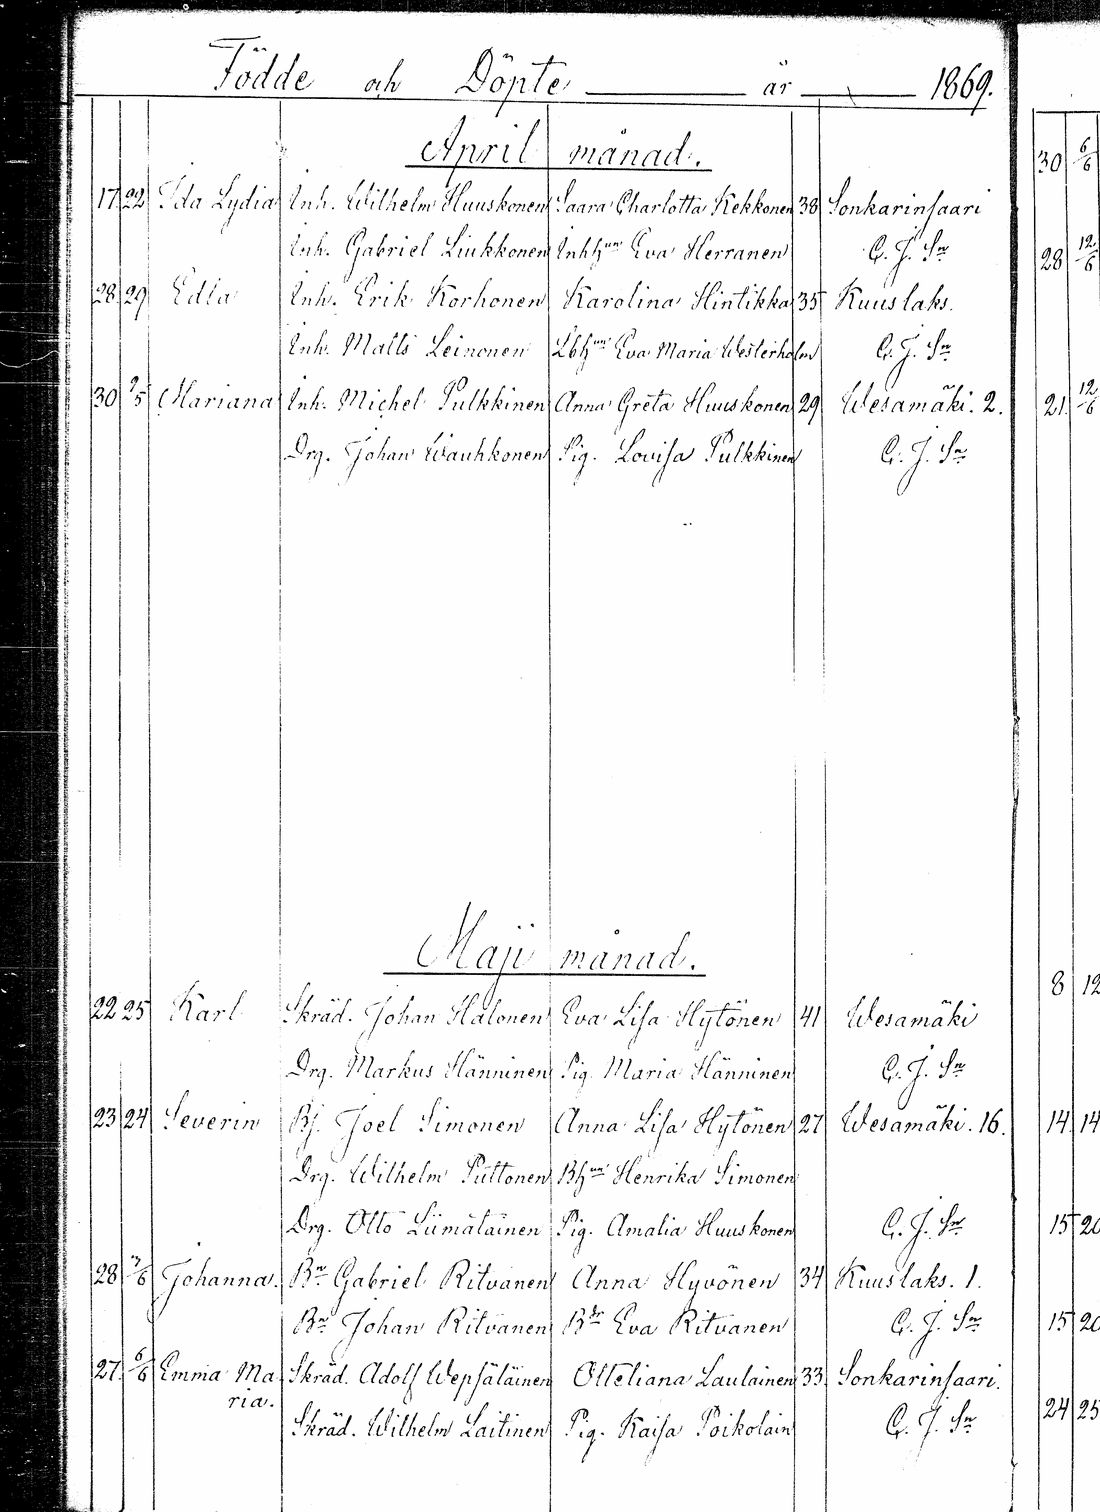 Födde och Döpte år 1869.
April månad.
17 22 Ida Lydia Inh. Wilhelm Huuskonen Saara Charlotta Kekkonen 38 Sonkarinsaari
Inh. Gabriel Liukkonen Inhhun Eva Herranen C. J. Sn
28 29 Edla Inh. Erik Korhonen Karolina Hintikka 35 Kuuslaks.
Inh. Matts Leinonen Lbhun Eva Maria Westerholm C. J. Sn
30 2/5 Mariana Inh. Michel Pulkkinen Anna Greta Huuskonen 29 Wesamäki. 2.
Drg. Johan Wauhkonen Pig. Lovisa Pulkkinen C. J. Sn
Maji månad.
22 25 Karl Skräd. Johan Halonen Eva Lisa Hytönen 41 Wesamäki
Drg. Markus Hänninen Pig. Maria Hänninen C. J. Sn
23 24 Severin Bj. Joel Simonen Anna Lisa Hytönen 27 Wesamäki. 16.
Drg. Wilhelm Puttonen Bhun Henrika Simonen
Drg. Otto Liimatainen Pig. Amalia Huuskonen C. J. Sn
28 /6 Johanna. Bn Gabriel Ritvanen Anna Hyvönen 34 Kuuslaks. 1.
Bn Johan Ritvanen Bdr Eva Ritvanen C. J. Sn
27 6/6 Emma Ma Skräd. Adolf Wepsäläinen Otteliana Laulainen 33 Sonkarinsaari.
ria.
Skräd. Wilhelm Laitinen Pig. Kaisa Poikolain C. J. Sn
30 6/6
28 12/6
21 12/6
8 12
14 14
15 20
15 20
24 25